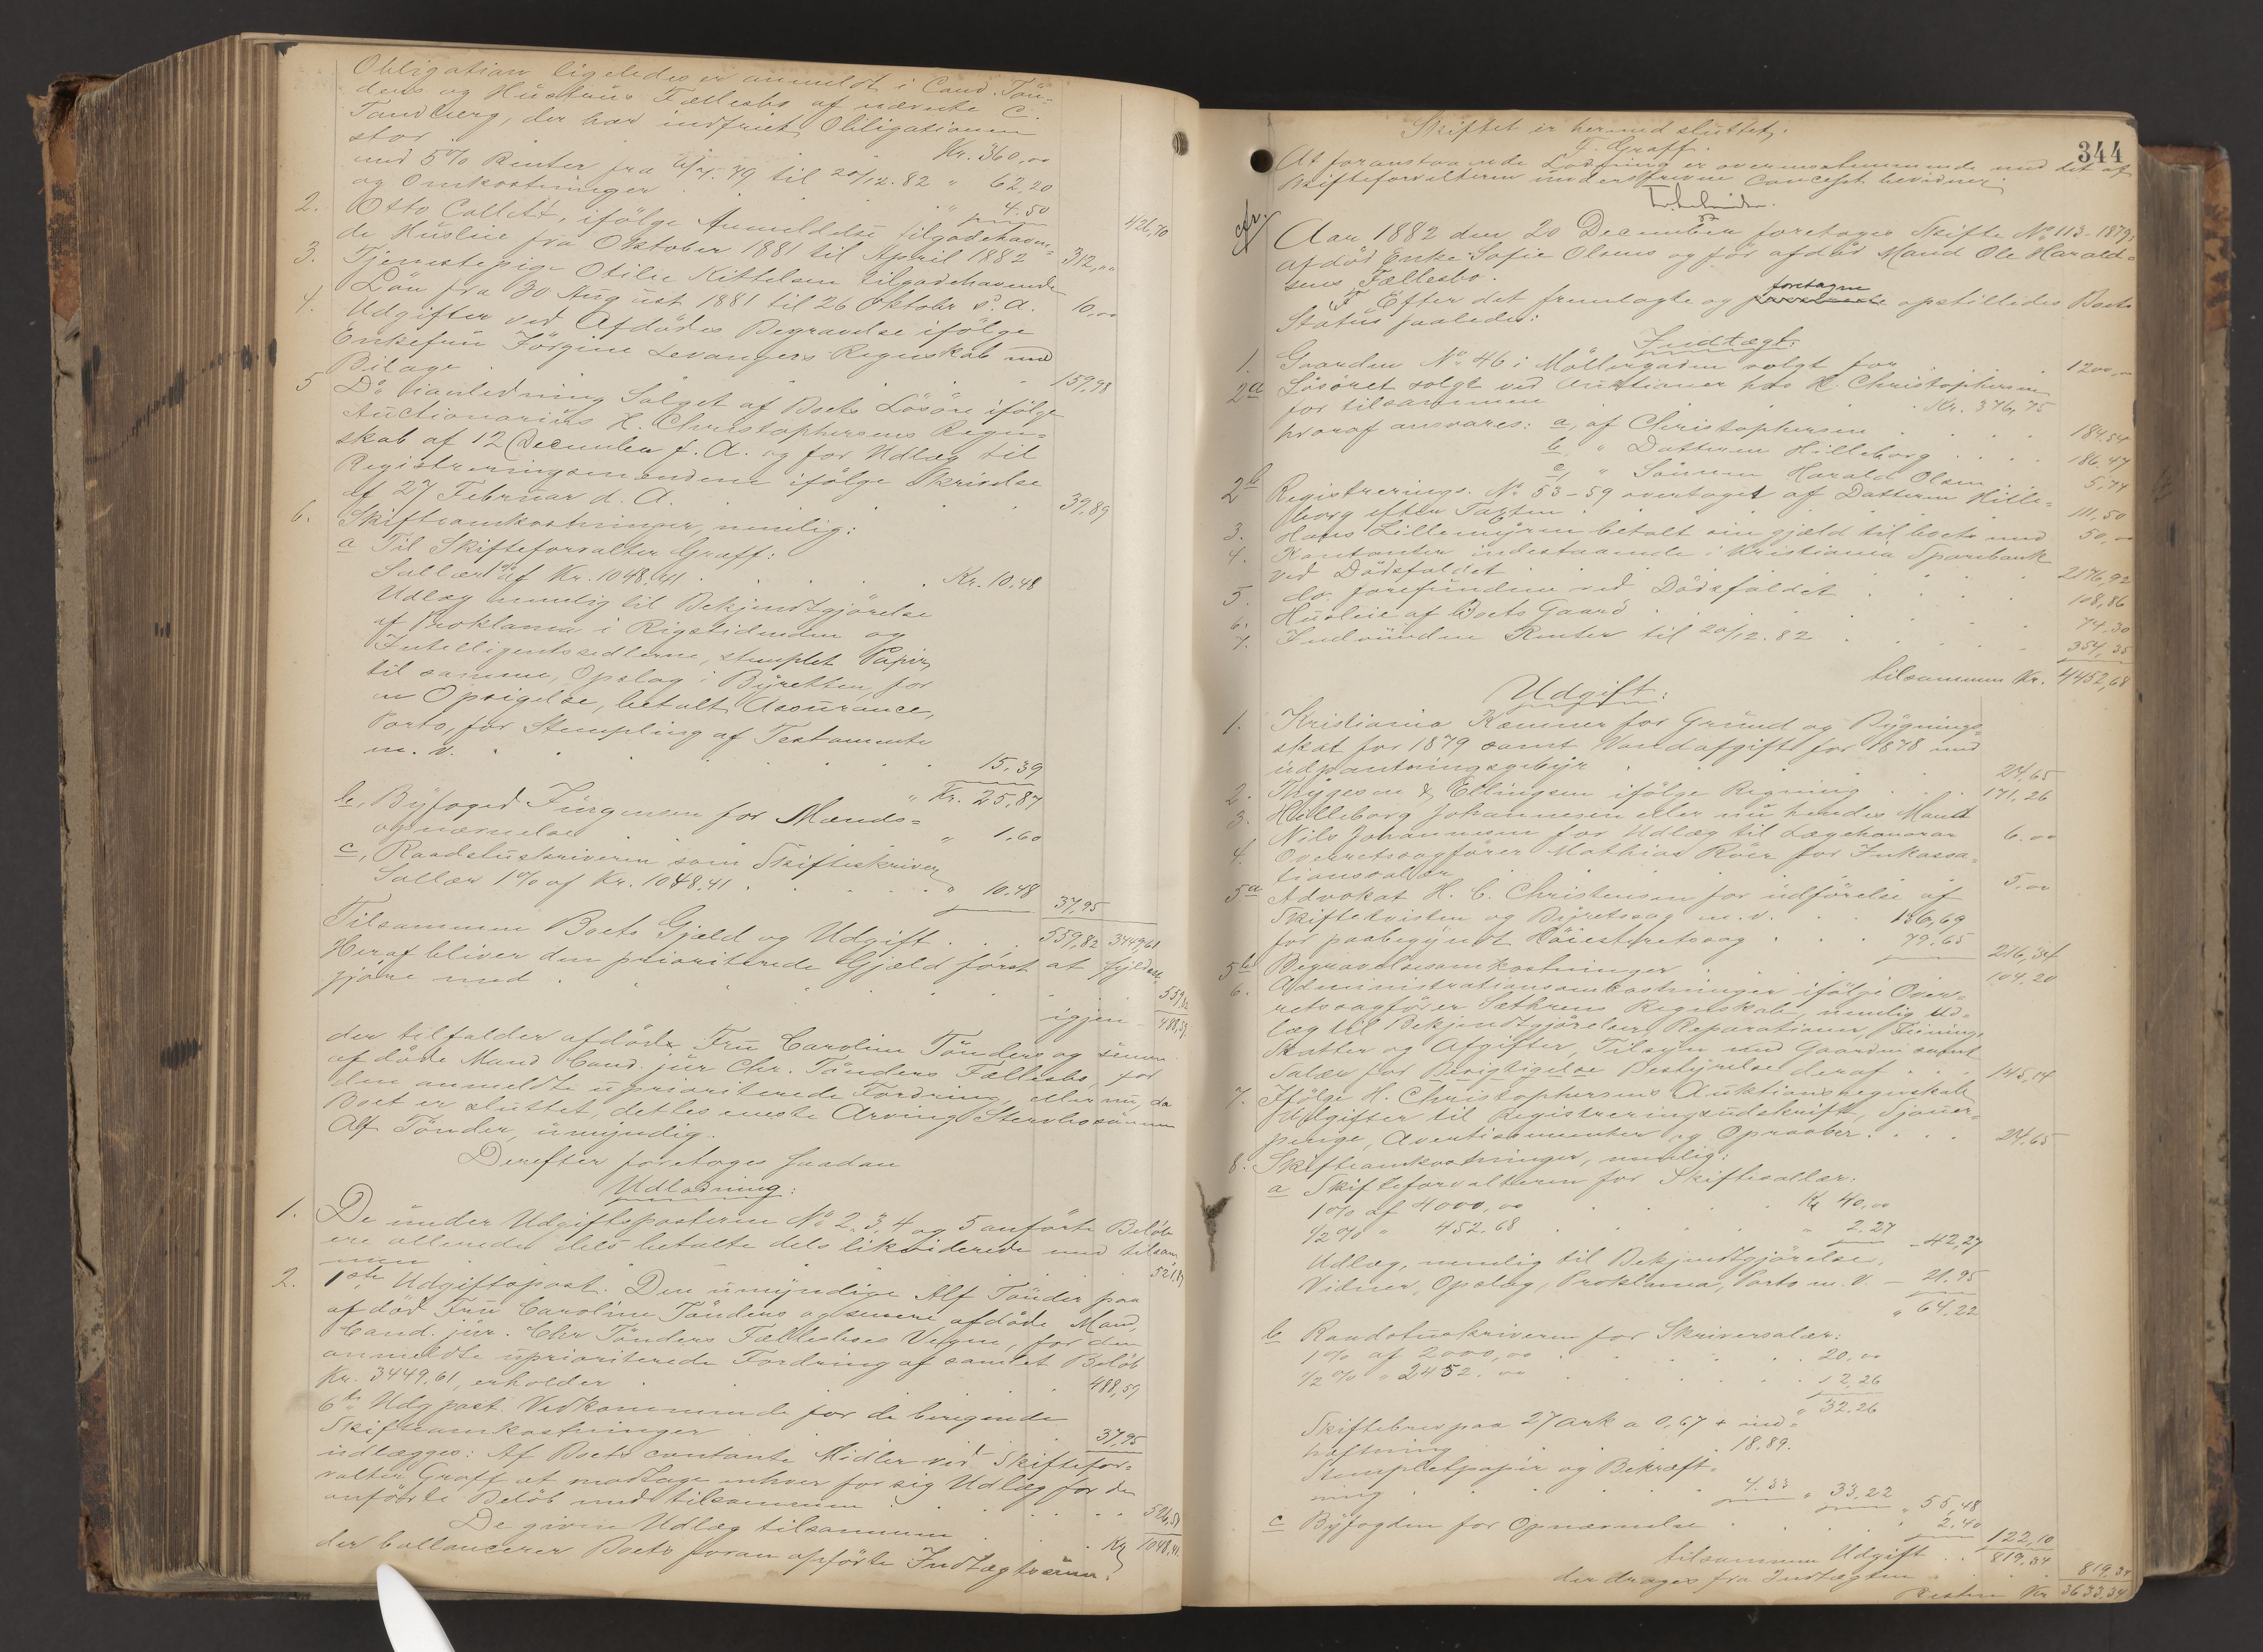 Obligation ligeledes er anmeldt i Cand. Tön-
ders og Hustrus Fællesbo af nævnte C.
Tandberg, der har indfriet Obligationen
stor Kr. 360,00
med 5% Renter fra 6/7. 79 til 20/12. 82 " 62,20
og Omkostninger " 4.50
426,70
2. Otto Collett, ifölge Anmeldelse tilgodehaven-
de Husleie fra Oktober 1881 til April 1882 312,""
3. Tjenestepige Otilie Kittelsen tilgodehavende
Lön fra 30 August 1881 til 26 Oktober s. A. 10,00
4. Udgifter ved Afdödes Begravelse ifölge
Enkefru Jörgine Levangers Regnskab med
Bilage 159,98
5 Do. i anledning Salget af Boets Lösöre ifölge
Auctionarius H. Christophersens Regn-
skab af 12 December f. A. og for Udlæg til
Registreringsmændene ifölge Skrivelse
af 27 Februar d. A. 39,89
6. Skifteomkostninger, nemlig:
a Til Skifteforvalter Graff:
Sallær 1% af Kr. 1048.41 Kr. 10.48
Udlæg nemlig til Bekjendtgjörelse
af Proklama i Rigstidenden og
Intelligentssedlerne, stemplet Papir
til samme, Opslag i Byretten, for
en Opsigelse, betalt Assurance,
Porto, for Stempling af Testamente
m. v. 15,39
" Kr. 25,87
b, Byfoged Jürgensen for Mænds-
opnævnelse " 1,60
c, Raadstuskriveren som Skifteskriver
Sallær 1% af Kr. 1048.41 " 10.48
37,95
Tilsammen Boets Gjæld og Udgift 559,82 3449,61
Heraf bliver den prioriterede Gjæld först at fyldest-
gjöre med 559,82
igjen 488,59
der tilfalder afdöde Fru Caroline Tönders og senere
afdöde Mand Cand. jur Chr. Tönders Fællesbo, for
den anmeldte uprioriterede Fordring, eller nu, da
Boet er sluttet, dettes eneste Arving Stervbosönnen
Alf Tönder, umyndig.
Derefter foretoges saadan
Udlodning:
1. De under Udgiftsposterne No 2, 3, 4 og 5 anförte Belöb
ere allerede dels betalte dels likviderede med tilsam
men 521,87
2. 1ste Udgiftspost. Den umyndige Alf Tönder paa
afdöd Fru Caroline Tönders og senere afdöde Mand,
Cand. jur. Chr Tönders Fællesboes Vegne, for den
anmeldte uprioriterede Fordring af samlet Belöb
Kr. 3449,61, erholder 488,59
6te Udg post. Vedkommende for de beregnede
Skifteomkostninger 37,95
udlægges: Af Boets contante Midler ved Skiftefor-
valter Graff at modtage enhver for sig Udlæg for de
anförte Belöb med tilsammen 526,54
De givne Udlæg tilsammen Kr. 1048,41.
der ballancerer Boets foran opförte Indtægtssum.
344
Skiftet er hermed sluttet,
F. Graff.
At foranstaaende Lodning er overensstemmende med det af
Skifteforvalteren underskrevne Concept bevidner
Aar 1882 den 20 December foretoges Skifte No 113-1879:
afdöd Enke Sofie Olsens og för afdöd Mand Ole Harald-
sens Fællesbo.
Efter det fremlagte og foretagne opstilledes Boets
Status saaledes:
Indtægt:
1. Gaarden No 46 i Möllergaden solgt for 1200,00
2a Lösöret solgt ved Auktioner hos H. Christophersen
for tilsammen Kr. 376,75
hvoraf ansvares: a, af Christophersen 184.54
b, " Datteren Hilleborg 186.47
c, " Sönnen Harald Olsen 5,74
2b Registrerings No 53-59 overtaget af Datteren Hille-
borg efter Taxten 111,50
3. Hans Lillemyren betalt sin gjæld til boet med 50,00
4. Kontanter indestaaende i Kristiania Sparebank
ved Dödsfaldet 2176,92
5. do. forefundne ved Dödsfaldet 108,86
6. Husleie af Boets Gaard 74,30
7. Indvundne Renter til 20/12. 82 354,35
tilsammen Kr. 4452,68
Udgift:
1. Kristiania Kæmner for Grund og Bygnings-
skat for 1879 samt Vandafgift for 1878 med
udpantningsgebyr 24,65
2. Thygesen & Ellingsen ifölge Regning 171,26
3. Hilleborg Johannesen eller nu hendes Mand
Nils Johannesen for Udlæg til Lægehonorar 6.00
4. Overretssagförer Mathias Röer for Inkassa-
tionssallær 5,00
5a Advokat H. C. Christensen for udförelse af
Skiftetvisten og Byretssag m. v. 136,69
for paabegyndt Höiesteretssag 79.65
216,34
5b Begravelsesomkostninger 104.20
6. Administrationsomkostninger ifölge Over-
retssagförer Sæthrens Regnskab, nemlig Ud-
læg til Bekjendtgjörelser, Reparationer,
Skatter og Afgifter, Tilsyn med Gaarden samt
Salær for Bestyrelse deraf 145,14
7. Ifölge H. Christophersens Auktionsregnskab
Udgifter til Registreringsudskrift, Sjouer-
penge, Avertissementer og Opraaber 24,65
8. Skifteomkostninger, nemlig:
a Skifteforvalteren for Skiftesallær:
1% af 4000,00 Kr 40,00
1/2 % " 452.68 " 2.27
- 42,27
Udlæg, nemlig til Bekjendtgjörelse,
Vidner, Opslag, Proklama, Porto m. V. - 21.95
" 64.22
b Raadstuskriveren for Skriversalær:
1% af 2000,00 20,00
1/2 % " 2452.00 12,26
" 32.26
Skiftebrev paa 27 ark a 0,67 + ind-
hæftning 18,89.
Stempletpapir og Bekræft-
ning 4.33 " 33,22 " 55,48
c Byfogden for Opnævnelse " 2.40
122,10
tilsammen Udgift 819,34
der drages fra Indtægten 819,34
Resten Kr 3633,34